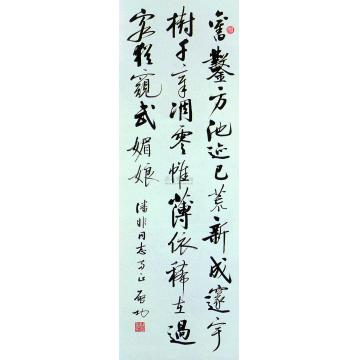 舊鑿方池迹已荒新成邃宇
樹千章凋零帷薄依稀在過
客猶窺武媚娘 潘非同志 正 啟功